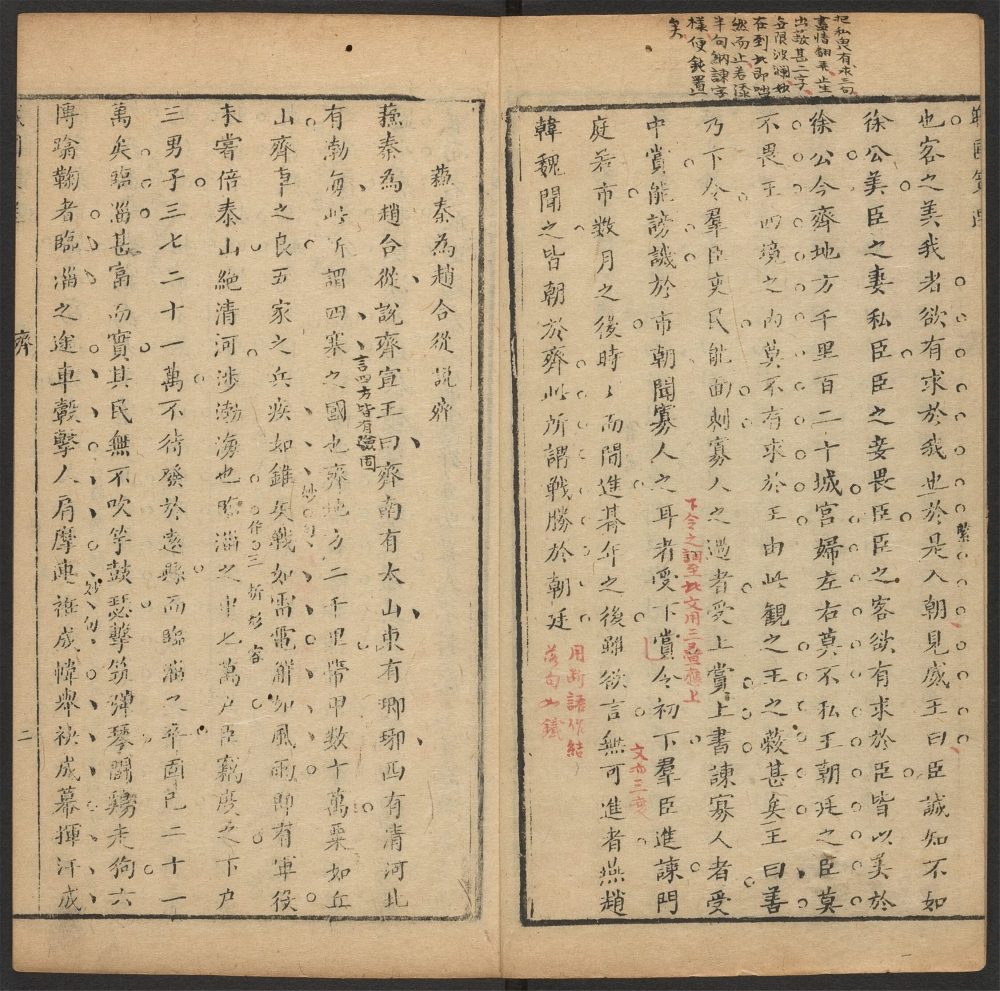 把私畏有求三句
盡情翻弄止生
出蔽甚二字
無限波瀾妙
在到此即
然而止若添
半句納諫字
樣便鈍置
矣
也客之美我者欲有求於我也於是入朝見威王曰臣誠知不如
徐公美臣之妻私臣臣之妾畏臣臣之客欲有求於臣皆以美於
徐公今齊地方千里百二十城宮婦左右莫不私王朝廷之臣莫
不畏王四境之內莫不有求於王由此觀之王之蔽甚矣王曰善
乃下令羣臣吏民能面刺寡人之過者受上賞上書諫寡人者受
中賞能謗譏於市朝聞寡人之耳者受下賞令初下羣臣進諫門
庭若市數月之後時〻而間進朞年之後雖欲言無可進者燕趙
韓魏聞之皆朝於齊此所謂戰勝於朝廷
繁
下令之詞至此文用三疊應上
文亦三變
用斷語作結
落句如鐵
蘇秦為趙合從說齊
蘇秦為趙合從說齊宣王曰齊南有太山東有瑯琊西有清河北
有渤海此所謂四塞之國也齊地方二千里帶甲數十萬粟如丘
言四方皆有險固
山齊車之良五家之兵疾如錐矢戰如雷電解如風雨即有軍役
妙句
未嘗倍泰山絕清河涉渤海也臨淄之中七萬戶臣竊度之下戶
作三折
三男子三七二十一萬不待發於遠縣而臨淄之卒固已二十一
萬矣臨淄甚富而實其民無不吹竽鼓瑟擊筑彈琴鬪鷄走狗六
博蹹鞠者臨淄之途車轂擊人肩摩連袵成幃舉袂成幕揮汗成
妙句
齊
二